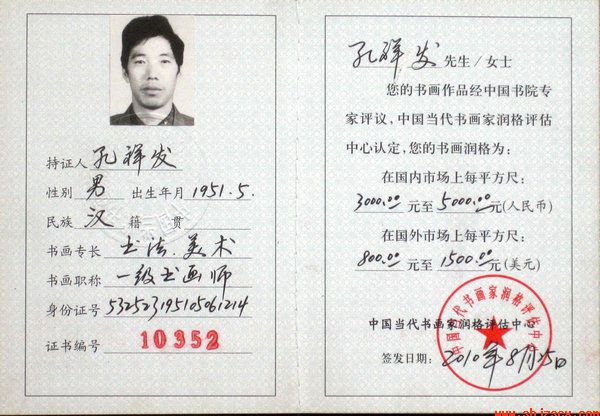 持证人 孔祥发
性别 男 出生年月 1951.5.
民族 汉 籍贯
书画专长 书法.美术
书画职称 一级书画师
身份证号 532523195105061214
证书编号 10352
孔祥发 先生/女士
您的书画作品经中国书院专
家评议,中国当代书画家润格评估
中心认定,您的书画润格为:
在国内市场上每平方尺:
3000.00 元至 5000.00 元(人民币)
在国外市场上每平方尺:
800.00 元至 1500.00 元(美元)
中国当代书画家润格评估中心
签发日期: 2010年8月25日
中国当代书画家润格评估中心